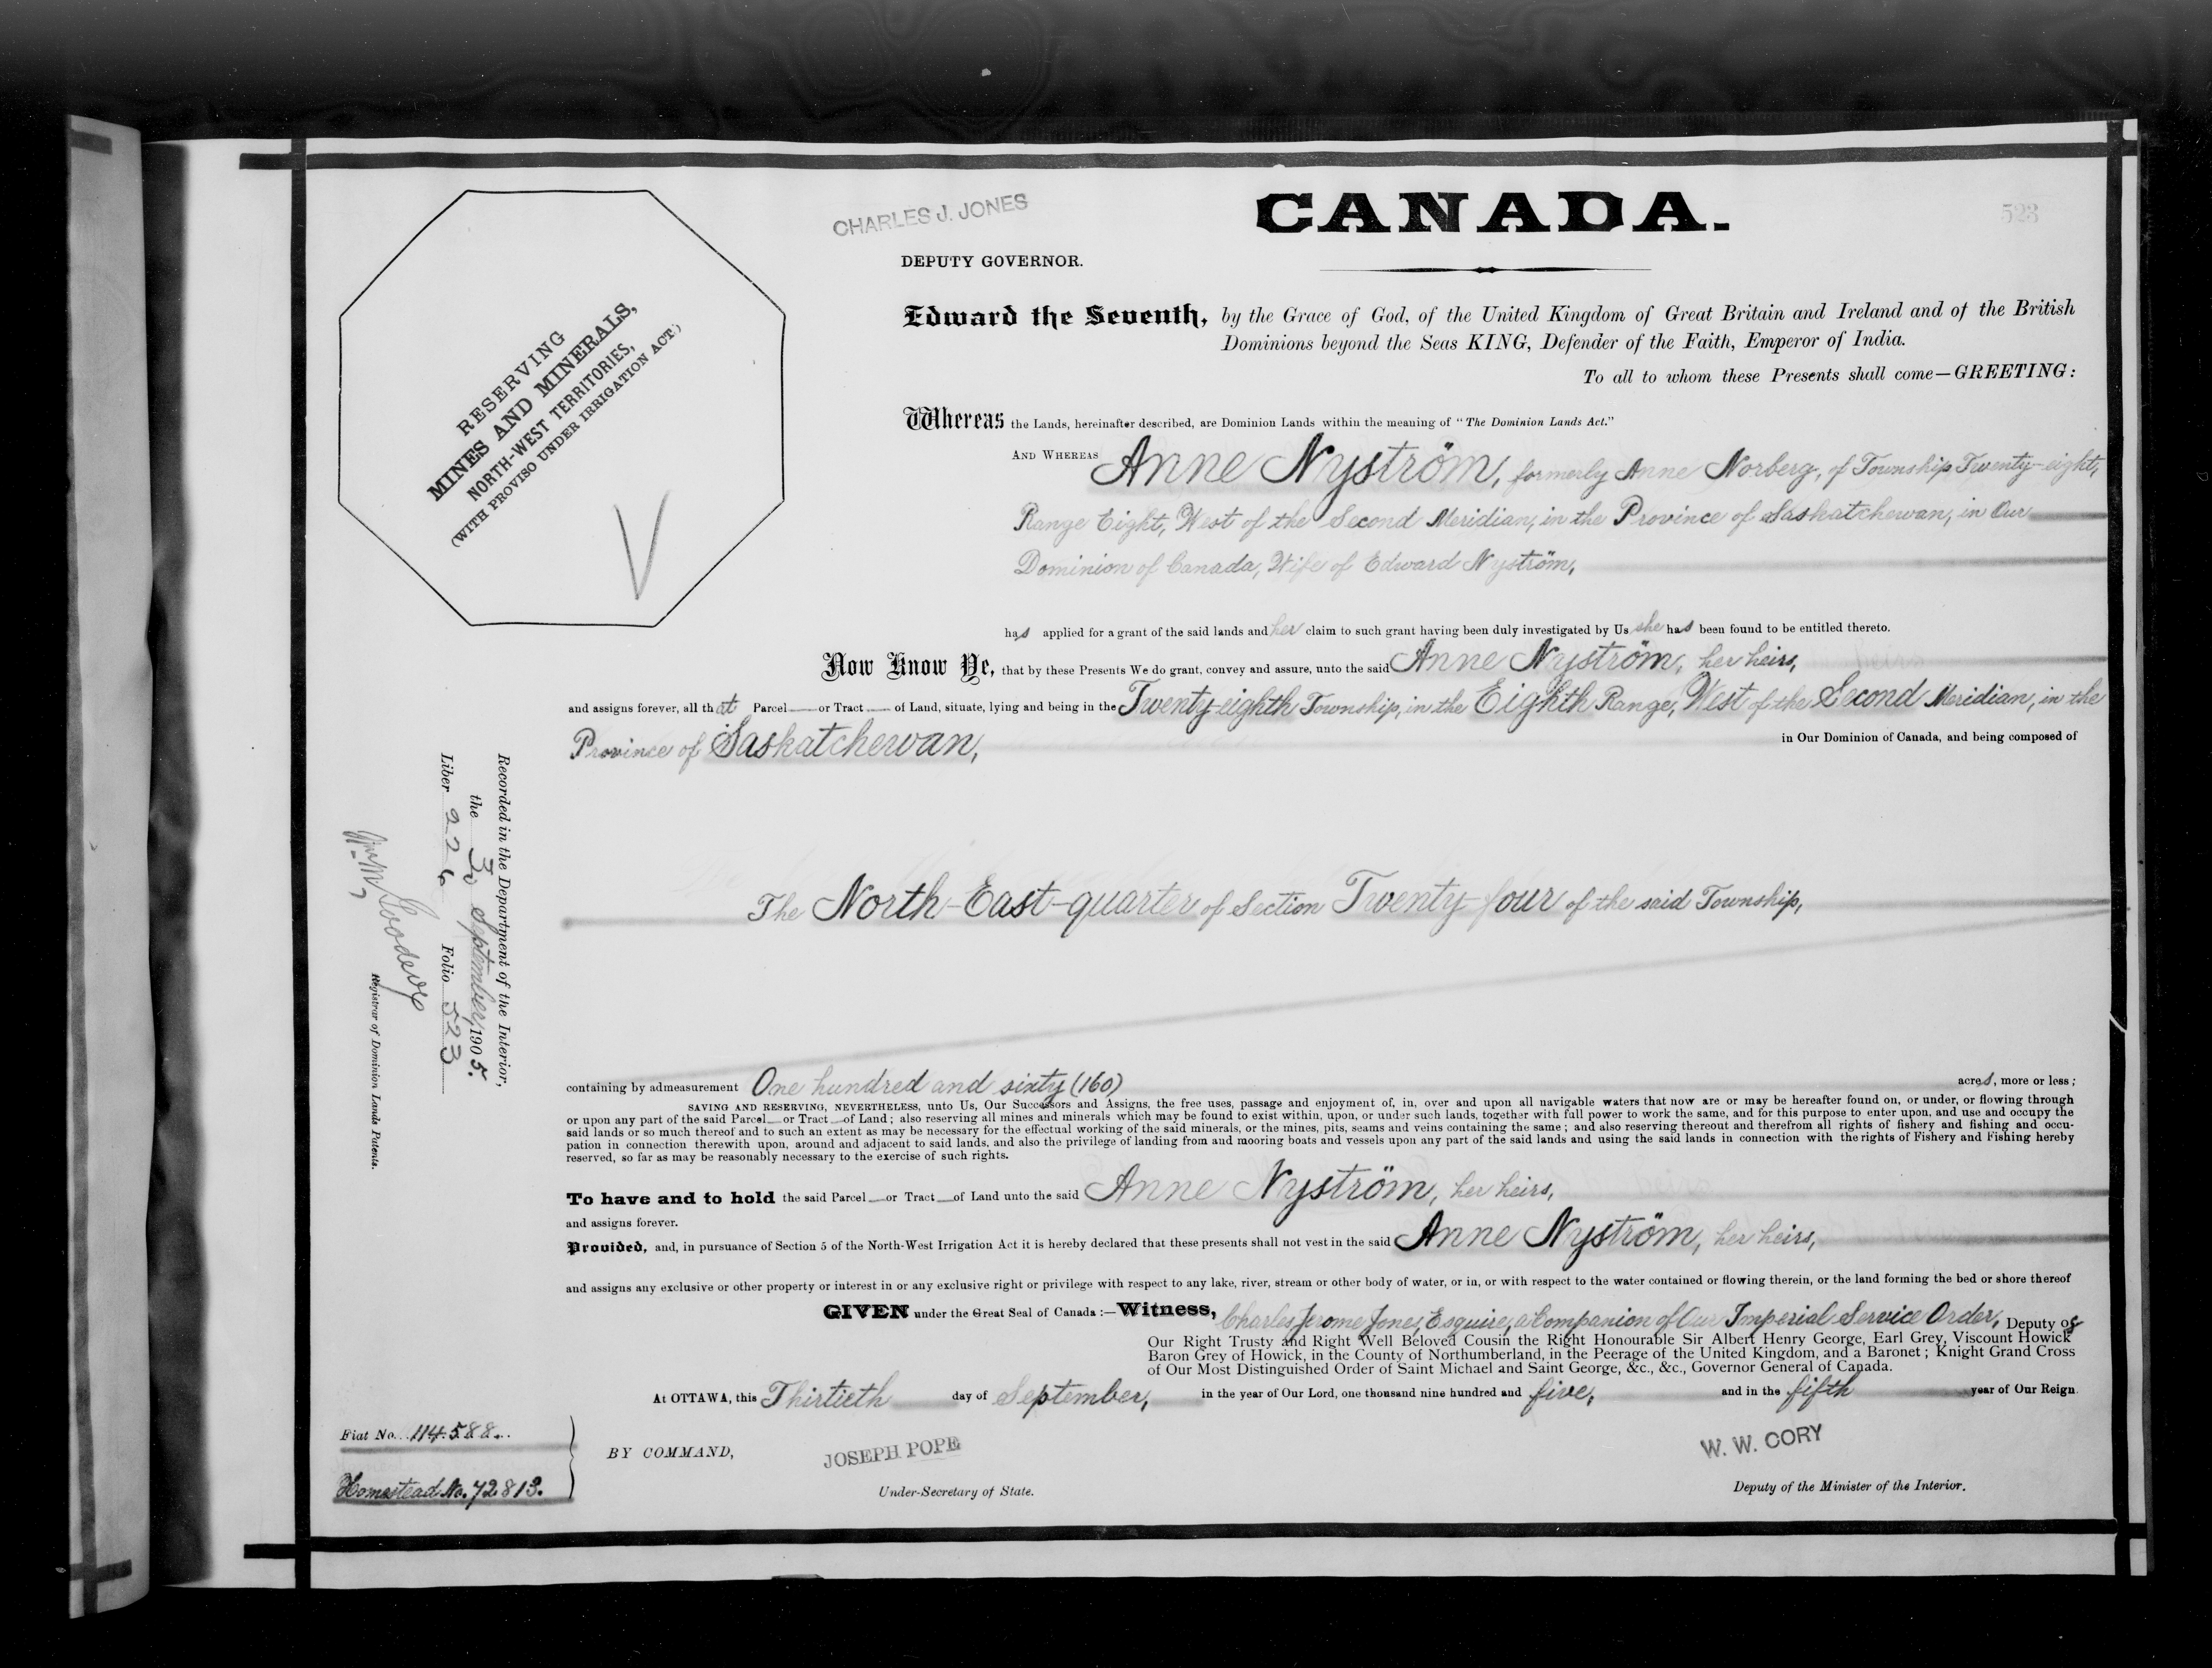 CHARLES J. JONES
CANADA.
523
DEPUTY GOVERNOR.
RESERVING
MINES AND MINERALS,
NORTH-WEST TERRITORIES,
(WITH PROVISO UNDER IRRIGATION ACT.)
Edward the Seventh, by the Grace of God, of the United Kingdom of Great Britain and Ireland and of the British
Dominions beyond the Seas KING, Defender of the Faith, Emperor of India.
To all to whom these Presents shall come—GREETING:
Whereas the Lands, hereinafter described, are Dominion Lands within the meaning of "The Dominion Lands Act."
AND WHEREAS Anne Nyström, formerly Anne Norberg, of Township Twenty-eight,
Range Eight, West of the Second Meridian, in the Province of Saskatchewan, in Our
Dominion of Canada, Wife of Edward Nyström,
has applied for a grant of the said lands and her claim to such grant having been duly investigated by Us she has been found to be entitled thereto.
Now Know Ye, that by these Presents We do grant, convey and assure, unto the said Anne Nyström, her heirs,
and assigns forever, all that Parcel or Tract of Land, situate, lying and being in the Twenty-eighth Township, in the Eighth Range, West of the Second Meridian, in the
Province of Saskatchewan, in Our Dominion of Canada, and being composed of
The North-East-quarter of Section Twenty-four of the said Township,
Recorded in the Department of the Interior,
the 30 September, 1905.
Liber 226 Folio 523
Registrar of Dominion Lands Patents.
containing by admeasurement One hundred and sixty (160) acres, more or less;
SAVING AND RESERVING, NEVERTHELESS, unto Us, Our Successors and Assigns, the free uses, passage and enjoyment of, in, over and upon all navigable waters that now are or may be hereafter found on, or under, or flowing through
or upon any part of the said Parcel or Tract of Land; also reserving all mines and minerals which may be found to exist within, upon, or under such lands, together with full power to work the same, and for this purpose to enter upon, and use and occupy the
said lands or so much thereof and to such an extent as may be necessary for the effectual working of the said minerals, or the mines, pits, seams and veins containing the same; and also reserving thereout and therefrom all rights of fishery and fishing and occu-
pation in connection therewith upon, around and adjacent to said lands, and also the privilege of landing from and mooring boats and vessels upon any part of the said lands and using the said lands in connection with the rights of Fishery and Fishing hereby
reserved, so far as may be reasonably necessary to the exercise of such rights.
To have and to hold the said Parcel or Tract of Land unto the said Anne Nyström, her heirs,
and assigns forever.
Provided, and, in pursuance of Section 5 of the North-West Irrigation Act it is hereby declared that these presents shall not vest in the said Anne Nyström, her heirs,
and assigns any exclusive or other property or interest in or any exclusive right or privilege with respect to any lake, river, stream or other body of water, or in, or with respect to the water contained or flowing therein, or the land forming the bed or shore thereof
GIVEN under the Great Seal of Canada:—Witness, Charles Jerome Jones, Esquire, a Companion of Our Imperial Service Order, Deputy of
Our Right Trusty and Right Well Beloved Cousin the Right Honourable Sir Albert Henry George, Earl Grey, Viscount Howick
Baron Grey of Howick, in the County of Northumberland, in the Peerage of the United Kingdom, and a Baronet; Knight Grand Cross
of Our Most Distinguished Order of Saint Michael and Saint George, &c., &c., Governor General of Canada.
At OTTAWA, this Thirtieth day of September, in the year of Our Lord, one thousand nine hundred and five, and in the fifth year of Our Reign.
Fiat No. 114588.
Homestead No. 72813.
BY COMMAND,
JOSEPH POPE
Under-Secretary of State.
W. W. CORY
Deputy of the Minister of the Interior.